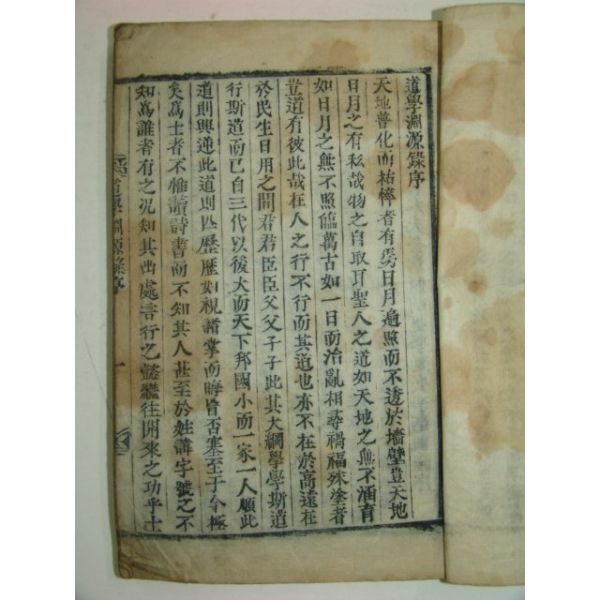 道學淵源錄序
天地普化而祜悴者有焉日月遍照而不透於墻壁豈天地
日月之有私哉物之自取耳聖人之道如天地之無不涵育
如日月之無不照臨萬古如一日而治亂相尋禍福殊塗者
豈道有彼此哉在人之行不行而其道也亦不在於高遠在
於民生日用之間君君臣臣父父子子此其大綱學學斯道
行斯道而已自三代以後大而天下邦國小而一家一人順此
道則興逆此道則亡歷歷如視諸掌而晦盲否塞至于今極
矣爲士者不惟讀詩書而不知其人甚至於姓諱字號之不
知爲誰者有之況知其出處言行之懿繼往開來之功乎士
道學淵源錄序
一